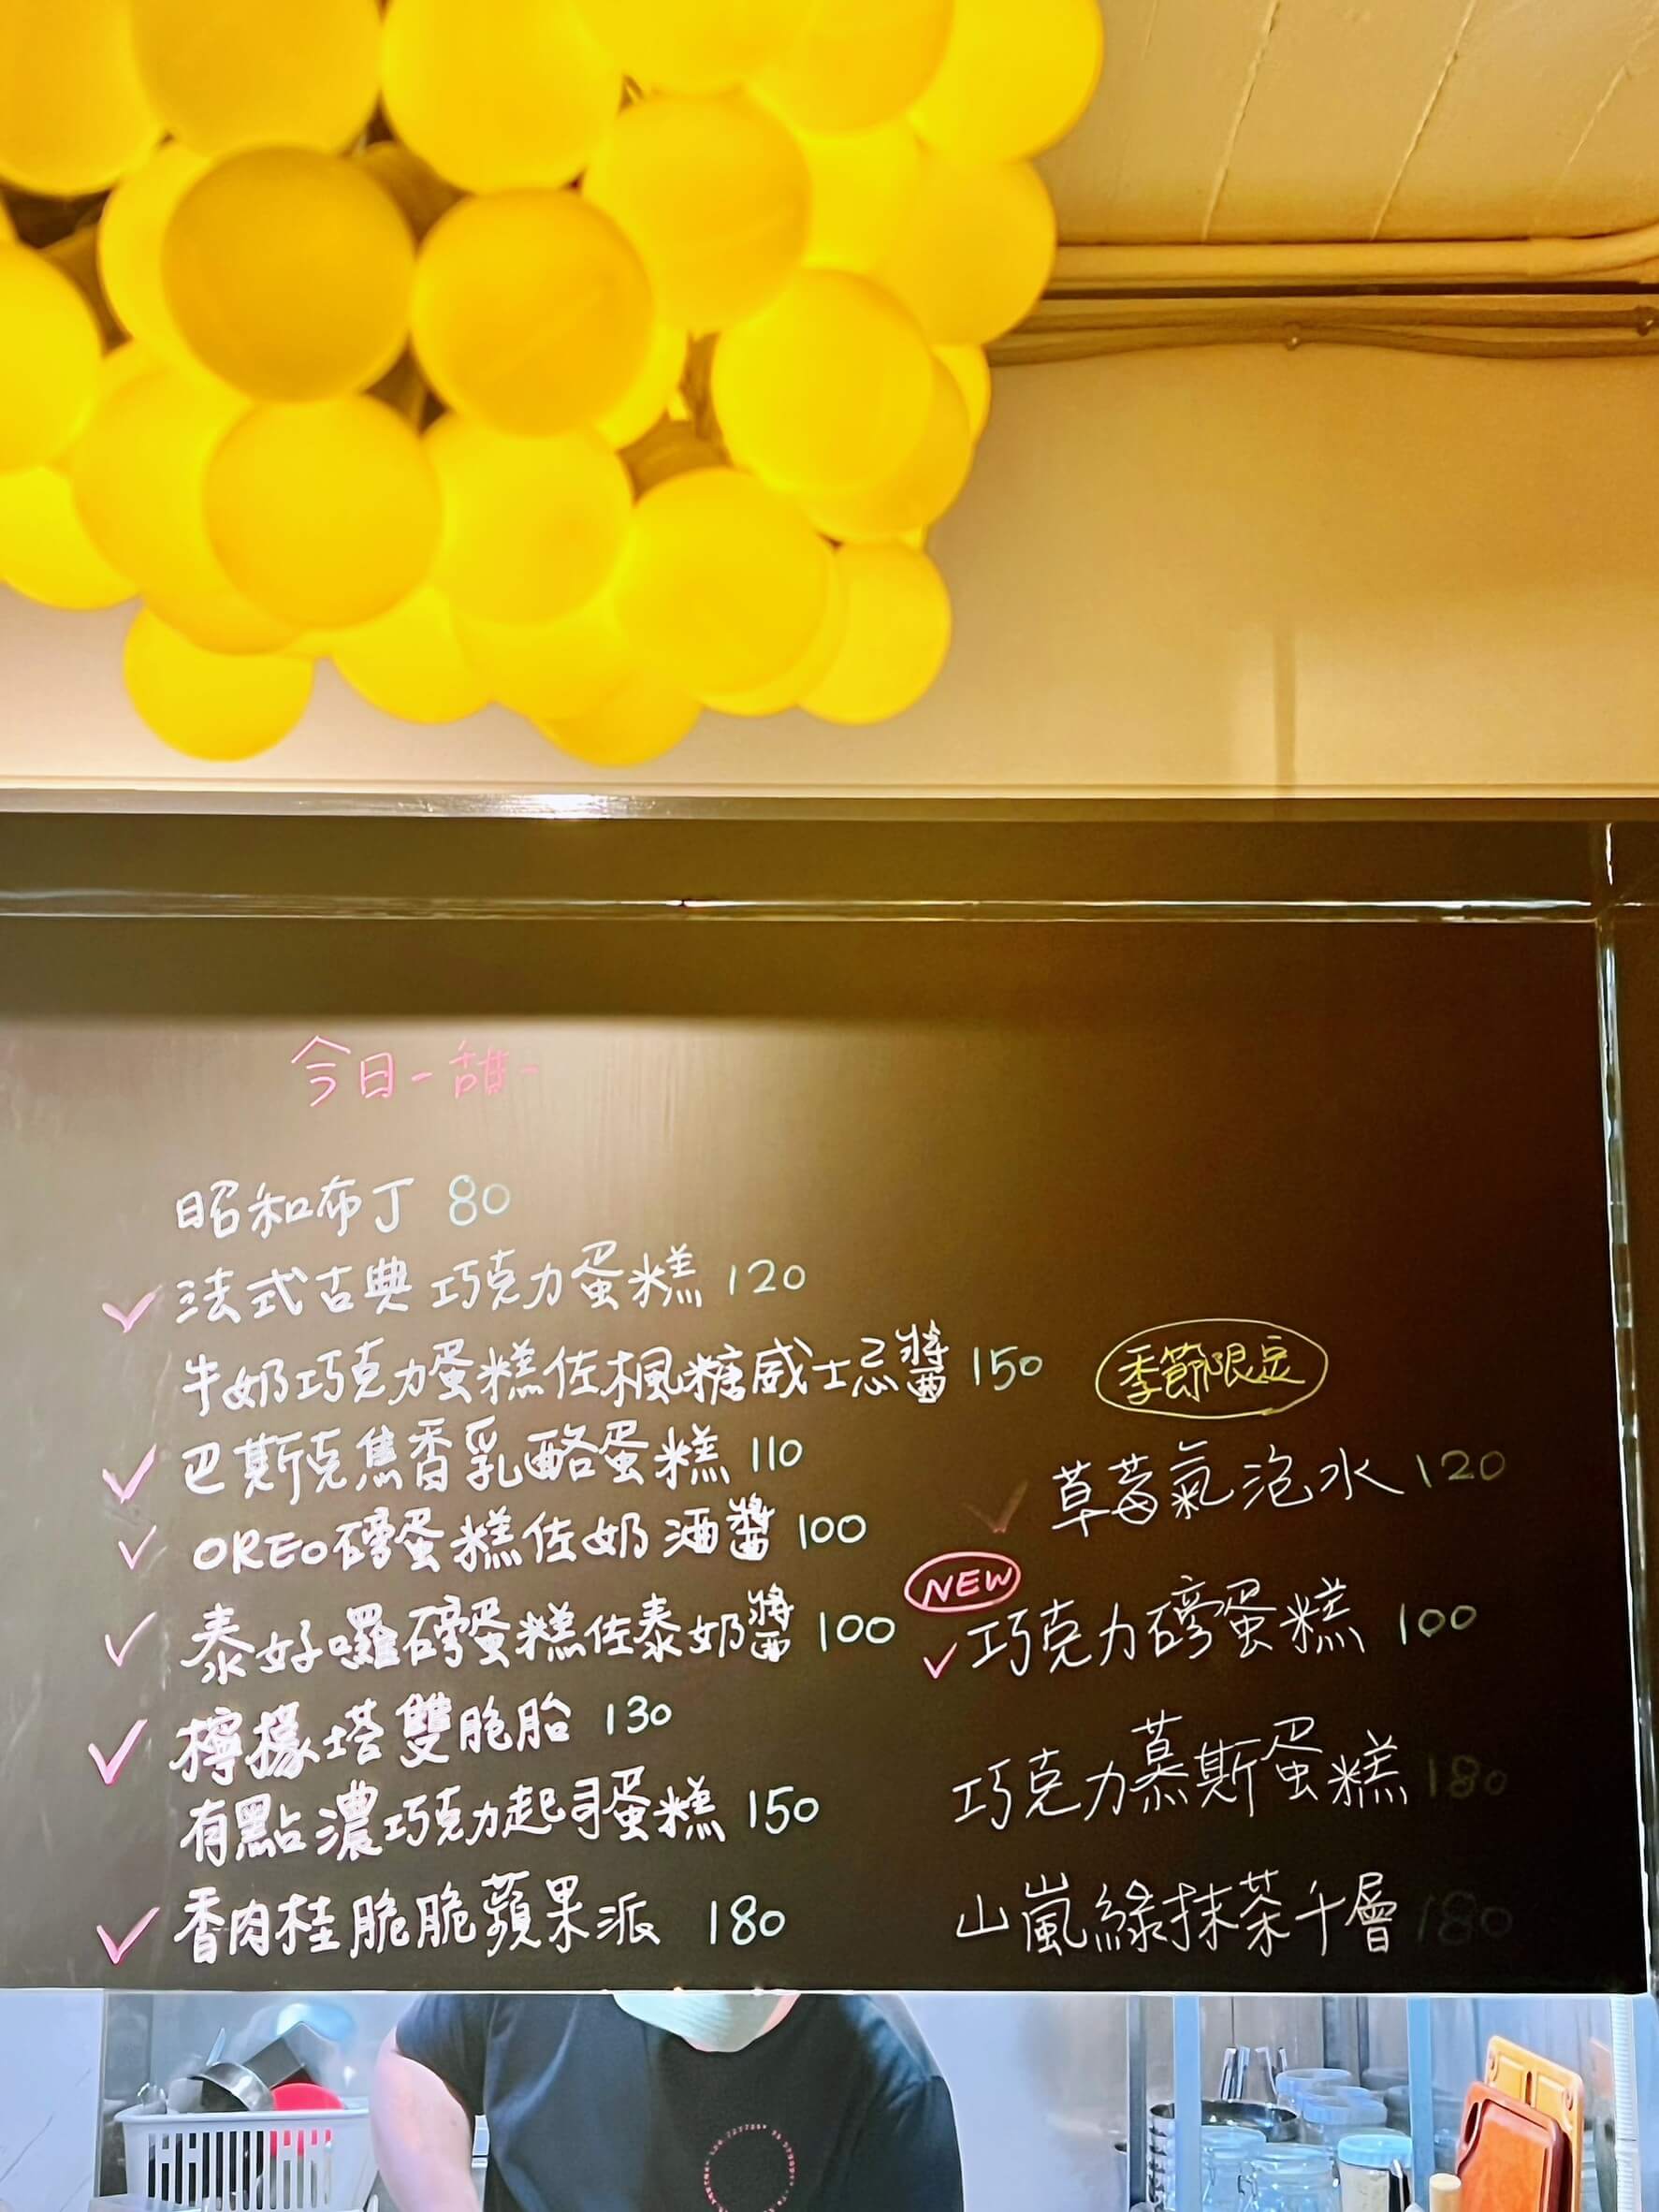 今日-甜-
昭和布丁 80
法式古典巧克力蛋糕 120
牛奶巧克力蛋糕佐楓糖威士忌醬 150
巴斯克焦香乳酪蛋糕 110
OREO磅蛋糕佐奶酒醬 100
泰好囉磅蛋糕佐泰奶醬 100
檸檬塔雙胞胎 130
有點濃巧克力起司蛋糕 150
香肉桂脆脆蘋果派 180
季節限定
草莓氣泡水 120
NEW
巧克力磅蛋糕 100
巧克力慕斯蛋糕 180
山嵐綠抹茶千層 180